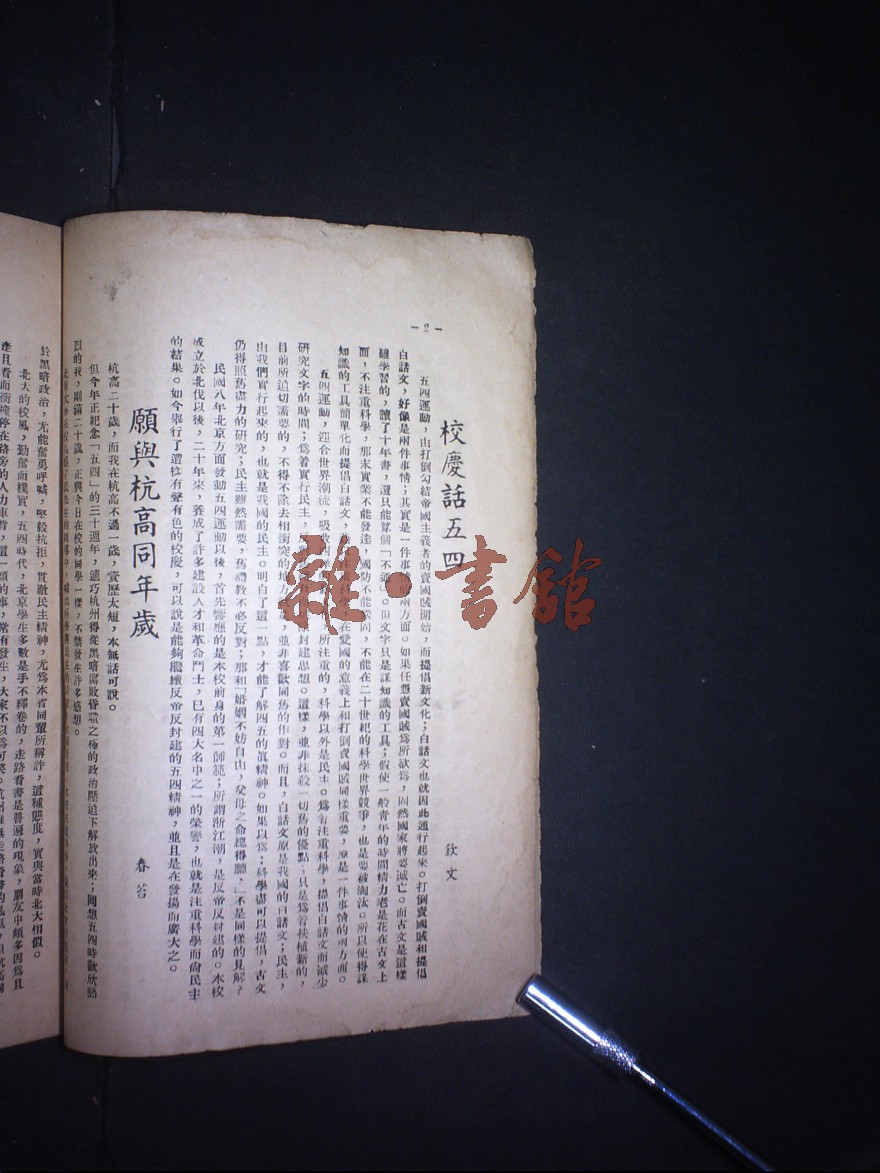 －2－
校慶話五四
欽文
五四運動，由打倒勾結帝國主義者的賣國賊開始，而提倡新文化；白話文也就因此通行起來。打倒賣國賊和提倡
白話文，好像是兩件事情；其實是一件事情的兩方面。如果任憑賣國賊為所欲為，固然國家將要滅亡。而古文是這樣
難學習的，讀了十年書，還只能算個「不通」。但文字只是謀知識的工具；假使一般青年的時間精力老是花在古文上
面，不注重科學，那末實業不能發達，國防不能鞏固，不能在二十世紀的科學世界競爭，也是要被淘汰。所以使得謀
知識的工具簡單化而提倡白話文，在愛國的意義上和打倒賣國賊同樣重要，原是一件事情的兩方面。
五四運動，迎合世界潮流，吸收 所注重的，科學以外是民主。為着注重科學，提倡白話文而減少
研究文字的時間；為着實行民主， 封建思想。這樣，並非抹殺一切舊的優點；只是為着扶植新的，
目前所迫切需要的，不得不除去相衝突的地方， 並非喜歡同舊的作對。而且，白話文原是我國的白話文；民主，
由我們實行起來的，也就是我國的民主。明白了這一點，才能了解四五的眞精神。如果以為；科學盡可以提倡，古文
仍得照舊盡力的研究；民主雖然需要，舊禮教不必反對；那和「婚姻不妨自由，父母之命總得聽，」不是同樣的見解？
民國八年北京方面發動五四運動以後，首先響應的是本校前身的第一師範；所謂浙江潮，是反帝反封建的。本校
成立於北伐以後，二十年來，養成了許多建設人才和革命鬥士，已有四大名中之一的榮譽，也就是注重科學而尚民主
的結果。如今舉行了這樣有聲有色的校慶，可以說是能夠繼續反帝反封建的五四精神，並且是在發揚而廣大之。
願與杭高同年歲
春苔
杭高二十歲，而我在杭高不過一歲，資歷太短，本無話可說。
但今年正紀念「五四」的三十週年，適巧杭州得從黑暗腐敗昏聵之極的政治壓迫下解放出來；囘想五四時歡欣熱
烈的我，剛滿二十歲，正與今日在校的同學一樣，不禁發生許多感想。
於黑暗政治，尤能奮勇呼喊，堅毅抗拒，貫澈民主精神，尤為本省同輩所稱許，這種態度，實與當時北大相似。
北大的校風，勤奮而樸實，五四時代，北京學生多數是手不釋卷的，走路看書是普遍的現象，朋友中頗多因為且
走且看而衝撞停在路旁的人力車背，這一類的事，常有發生，大家不以為可笑。
雜·書館